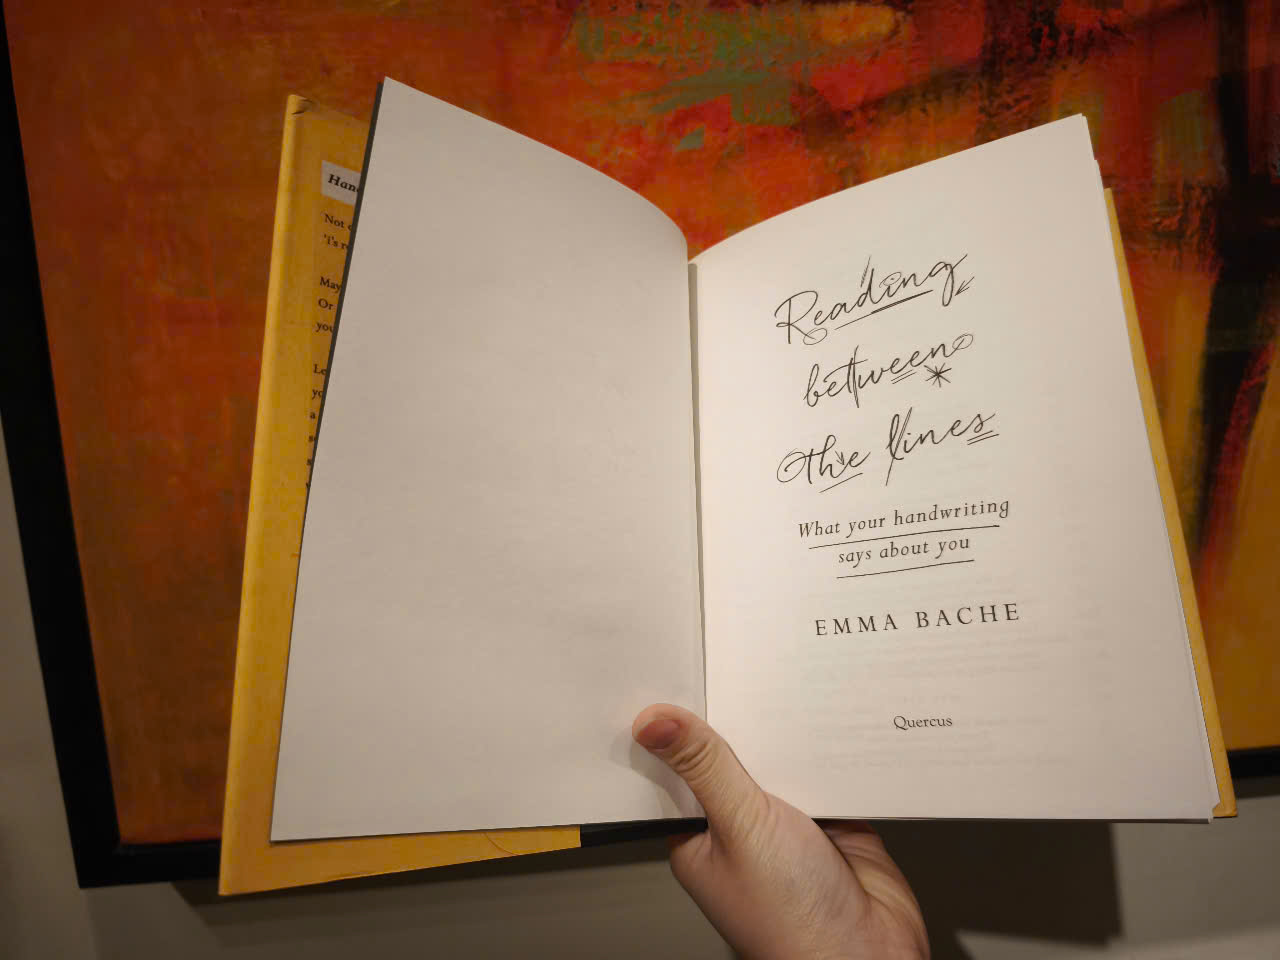 Not
May
Or
a
Reading
between
the lines
What your handwriting
says about you
EMMA BACHE
Quercus